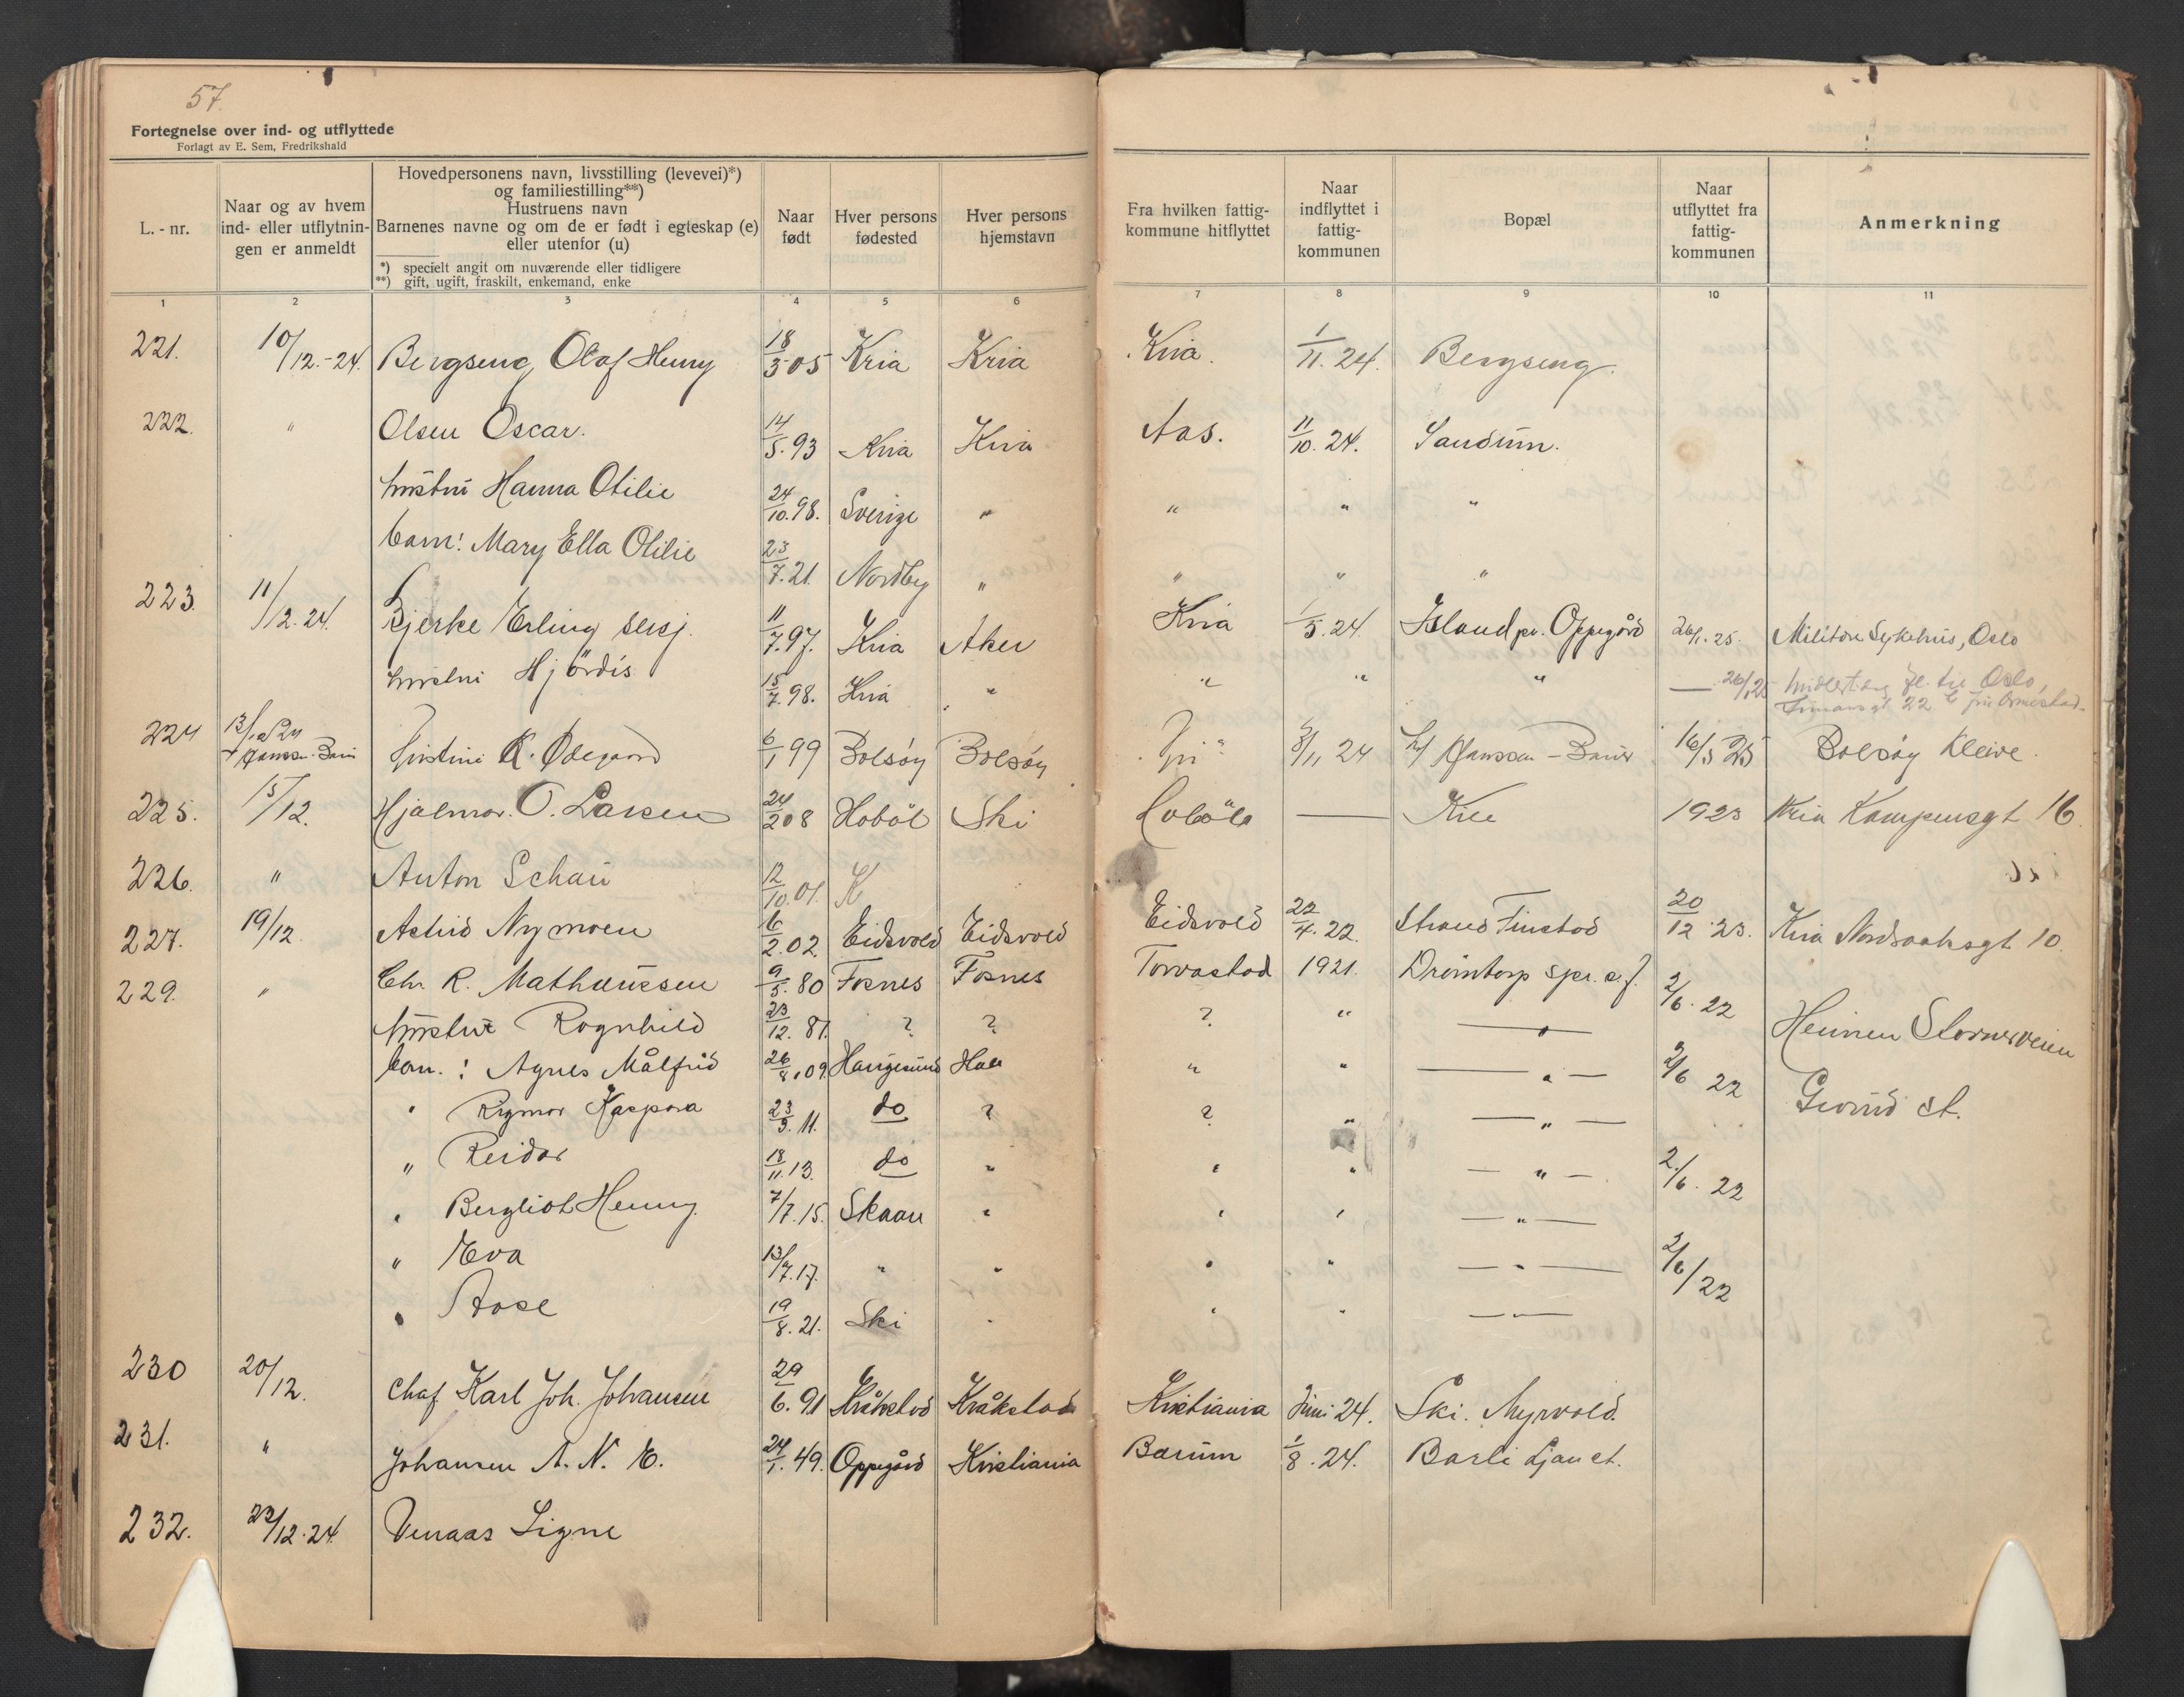 57.
Fortegnelse over ind- og utflyttede
Forlagt av E. Sem, Fredrikshald
L. - nr.
Naar og av hvem
ind- eller utflytnin-
gen er anmeldt
Hovedpersonens navn, livsstilling (levevei)*)
og familiestilling**)
Hustruens navn
Barnenes navne og om de er født i egteskap (e)
eller utenfor (u)
*) specielt angit om nuværende eller tidligere
**) gift, ugift, fraskilt, enkemand, enke
Naar
født
Hver persons
fødested
Hver persons
hjemstavn
Fra hvilken fattig-
kommune hitflyttet
Naar
indflyttet i
fattig-
kommunen
Bopæl
Naar
utflyttet fra
fattig-
kommunen
Anmerkning
1 2 3 4 5 6 7 8 9 10 11
221. 10/12.-24. Bergseng, Olaf Henry 18/5 05 Kria Kria Kria. 1/11. 24. Bergseng.
222. " Olsen Oscar. 14/5. 93 Kria Kria Aas. 11/10. 24. Sandum.
hustru Hanna Otilie 24/10. 98. Sverige " " " "
barn: Mary Ella Otilie 23/7. 21. Nordby " " " "
223. 11/12. 24. Bjerke Erling sersj. 11/7. 97. Kria Aker Kria 1/5. 24. Island pr. Oppegård 26/1. 25. Militære Sykehus, Oslo
hustru Hjördis 15/7. 98. Kria " " " " — 26/1 25 Midlertidig fl. til Oslo,
22
224 13/12 24 Kristine K. Ødegaard 6/1 99 Bolsøy Bolsøy 3/11 24 16/3 25 Bolsøy Kleive.
225. 15/12. Hjalmar. O. Larsen 24/2 08 Hobøl Ski Hobøl — 1923 Kria Kampensgt 16.
226. " Anton Schau 12/10. 01. K
227. 19/12 Astrid Nymoen 6/2. 02. Eidsvold Eidsvold Eidsvold 22/4. 22. Strand Finstad 20/12 23. Kria Nordraaksgt 10.
229. " Chr. R. Mathiussen 9/5. 80 Fosnes Fosnes Torvastad 1921. Drömtorp 2/6. 22
hustru Ragnhild 23/12. 81. ? ? ? " — " — Heimen Slornesveien
barn. : Agnes Målfrid 26/8. 09. Haugesund " " — " — 2/6 22
" Rigmor Kaspara 23/3. 11. do ? ? " — " — Grorud st.
" Reidar 18/11. 13. do " " " — " — 2/6. 22
" Bergliot Henny 7/7. 15. Skaan " " " — " —
" Eva 13/7. 17. " " " " — " — 2/6/22
" Aase 19/8. 21. Ski " " " — " —
230 20/12. Chaf Karl Joh. Johansen 29/6. 91 Kråkstad Kråkstad Kristiania Juni 24. Ski. Myrvold.
231. " Johansen A. N. E. 24/1. 49. Oppegård Kristiania Bærum 1/8. 24. Barli Ljan st.
232. 22/12. 24. Venaas Signe